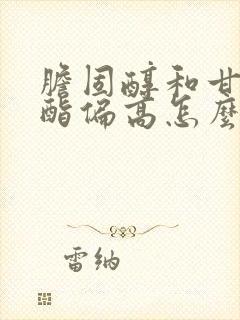 膽固醇和甘
酯偏高怎麼
雷纳